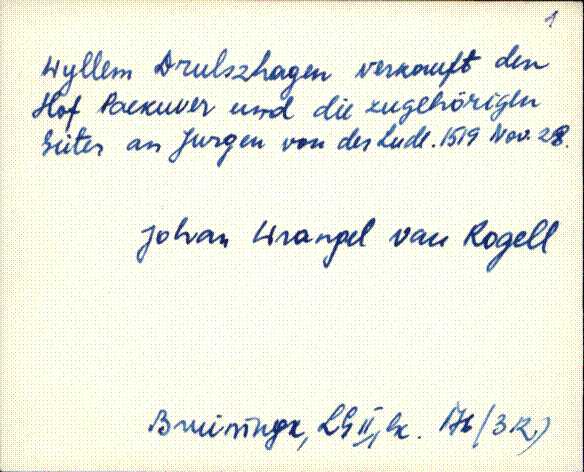 1
Wyllem Drulszhagen verkauft den
Hof Packuver und die zugehörigen
Güter an Jurgen von der Lude. 1519 Nov. 28.
Johan Wrangel van Rogell
Bruiningk, LG II,